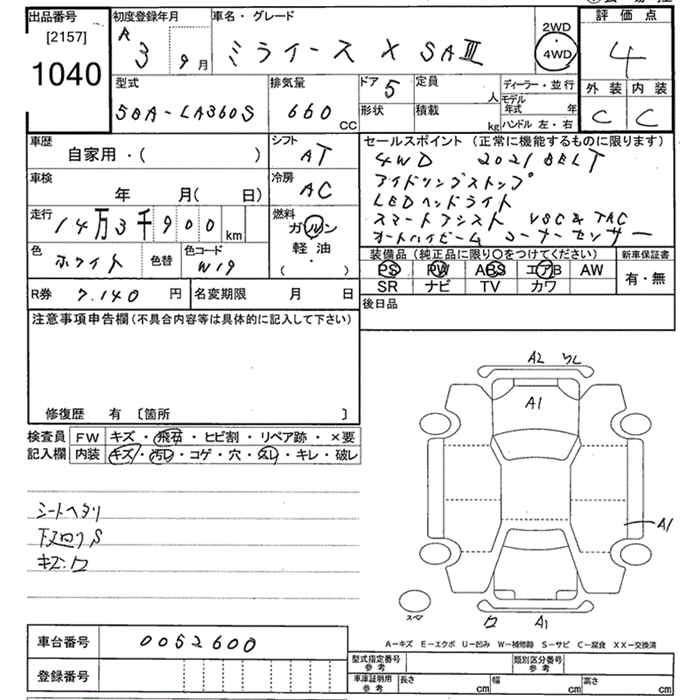 出品番号 初度登録年月 車名・グレード 評価点
[2157] R 3 9月 ミライース X SAⅢ 2WD 4WD 4
1040
型式 排気量 ドア 5 定員 人 ディーラー・並行 外装 内装
5BA-LA360S 660 CC 形状 積載 kg モデル年式 年 C C
ハンドル 左・右
車歴 シフト セールスポイント (正常に機能するものに限ります)
自家用・( ) AT 4WD 2021 BELT
車検 冷房 アイドリングストップ
年 月( 日) AC LEDヘッドライト
走行 燃料 スマートアシスト VSC & TRC
14万3千900km ガソリン オートハイビーム コーナーセンサー
色 色替 色コード 軽油 装備品 (純正品に限り○をつけてください) 新車保証書
ホワイト W19 ( ・ ) PS PW ABS エアB AW 有・無
R券 7.140 円 名変期限 月 日 SR ナビ TV カワ
注意事項申告欄 (不具合内容等は具体的に記入して下さい) 後日品
A2
A1
修復歴 有 [箇所 ]
検査員 FW キズ・飛石・ヒビ割・リペア跡・×要
記入欄 内装 キズ・汚レ・コゲ・穴・スレ・キレ・破レ
シートヘタリ
下廻りS
A1
キズ.ワ
スペア
A1
A-キズ E-エクボ U-凹み W-補修跡 S-サビ C-腐食 XX-交換済
車台番号 0052600
登録番号
型式指定番号 参考 類別区分番号 参考
車庫証明用 参考 長さ cm 幅 cm 高さ cm